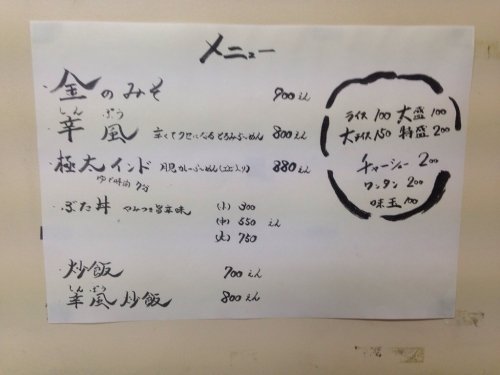 メニュー
・金のみそ 900えん
しんぷう
・辛風 辛くてクセになるとろみらーめん 800えん
・極太インド 月見カレーらーめん(エビ入り) 880えん
ゆで時間7分
・ぶた丼 やみつき旨辛味 (小) 300
(中) 550えん
(大) 750
・炒飯 700えん
しんぷう
・辛風炒飯 800えん
ライス100 大盛100
大ライス150 特盛200
チャーシュー200
ワンタン200
味玉100